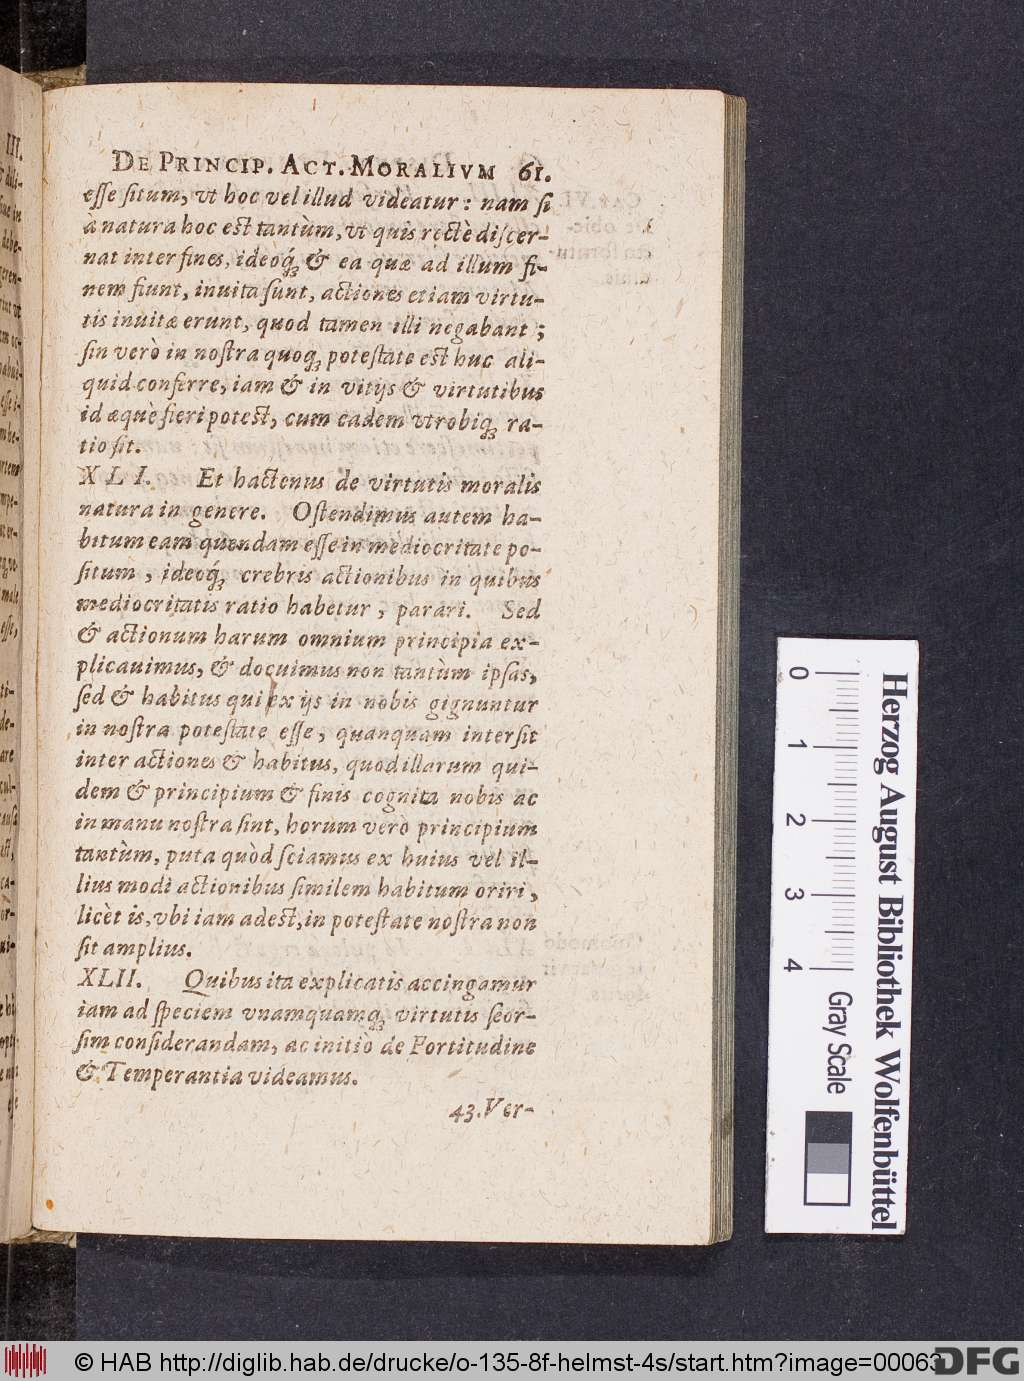 DE PRINCIP. ACT. MORALIVM 61.
esse situm, vt hoc vel illud videatur: nam si
à natura hoc est tantùm, vt quis rectè discer-
nat inter fines, ideoq́ꝫ & ea quæ ad illum fi-
nem fiunt, inuita sunt, actiones etiam virtu-
tis inuitæ erunt, quod tamen illi negabant;
sin verò in nostra quoqꝫ potestate est huc ali-
quid conferre, iam & in vitijs & virtutibus
id æquè fieri potest, cum eadem vtrobiqꝫ ra-
tio sit.
XLI. Et hactenus de virtutis moralis
natura in genere. Ostendimus autem ha-
bitum eam quendam esse in mediocritate po-
situm, ideoq́ꝫ crebris actionibus in quibus
mediocritatis ratio habetur, parari. Sed
& actionum harum omnium principia ex-
plicauimus, & docuimus non tantùm ipsas,
sed & habitus qui ex ijs in nobis gignuntur
in nostra potestate esse, quanquam intersit
inter actiones & habitus, quod illarum qui-
dem & principium & finis cognita nobis ac
in manu nostra sint, horum verò principium
tantùm, puta quòd sciamus ex huius vel il-
lius modi actionibus similem habitum oriri,
licèt is, vbi iam adest, in potestate nostra non
sit amplius.
XLII. Quibus ita explicatis accingamur
iam ad speciem vnamquamqꝫ virtutis seor-
sim considerandam, ac initiò de Fortitudine
& Temperantia videamus.
43. Ver-
0 1 2 3 4
Gray Scale
Herzog August Bibliothek Wolfenbüttel
© HAB http://diglib.hab.de/drucke/o-135-8f-helmst-4s/start.htm?image=00063
DFG